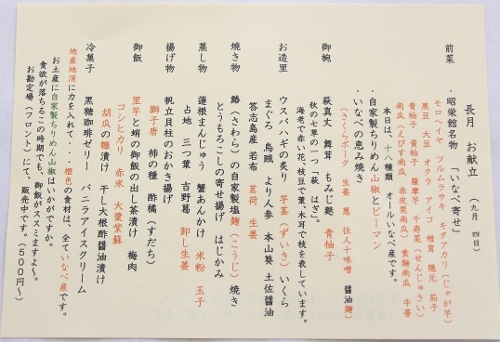 長月 お献立 (九月 四日)
前菜
・昭栄館名物 「いなべ寄せ」
モロヘイヤ ツルムラサキ キタアカリ(じゃが芋)
黒豆 大豆 オクラ アイコ 椎茸 隠元 茄子
青柚子 黄柚子 薩摩芋 千寿菜(せんじゅさい)
南瓜(えびす南瓜 赤皮栗南瓜) 素麺南瓜 牛蒡
本日は、十八種類 オールいなべ産です。
・自家製ちりめん山椒とピーマン
・いなべの恵み焼き
(さくらポーク 生姜 葱 住人十味噌 醤油麹)
御椀
萩真丈 舞茸 もみじ麩 青柚子
秋の七草の一つ「萩 はぎ」。
海老で赤い花、枝豆で葉、木耳で枝を表しています。
お造里
ウスバハギの炙り 芋茎(ずいき) いくら
まぐろ 烏賊 より人参 本山葵 土佐醤油
答志島産 若布 茗荷 生姜
焼き物
鰆(さわら)の自家製塩麹(こうじ)焼き
とうもろこしの寄せ揚げ はじかみ
蒸し物
蓮根まんじゅう 蟹あんかけ 米粉 玉子
占地 三つ葉 吉野葛 卸し生姜
揚げ物
帆立貝柱のおかき揚げ
獅子唐 柿の種 酢橘(すだち)
御飯
里芋と蛸の御飯の出し茶漬け 梅肉
コシヒカリ 赤米 大葉紫蘇
胡瓜の糠漬け 干し大根酢醤油漬け
冷菓子
黒糖珈琲ゼリー バニラアイスクリーム
地産地消に力を入れて・・・橙色の食材は、全ていなべ産です。
お土産に自家製ちりめん山椒はいかがですか。
食欲が落ちるこの時期でも、御飯がススミますよ~。
お勘定場(フロント)にて、販売中です。(500円~)